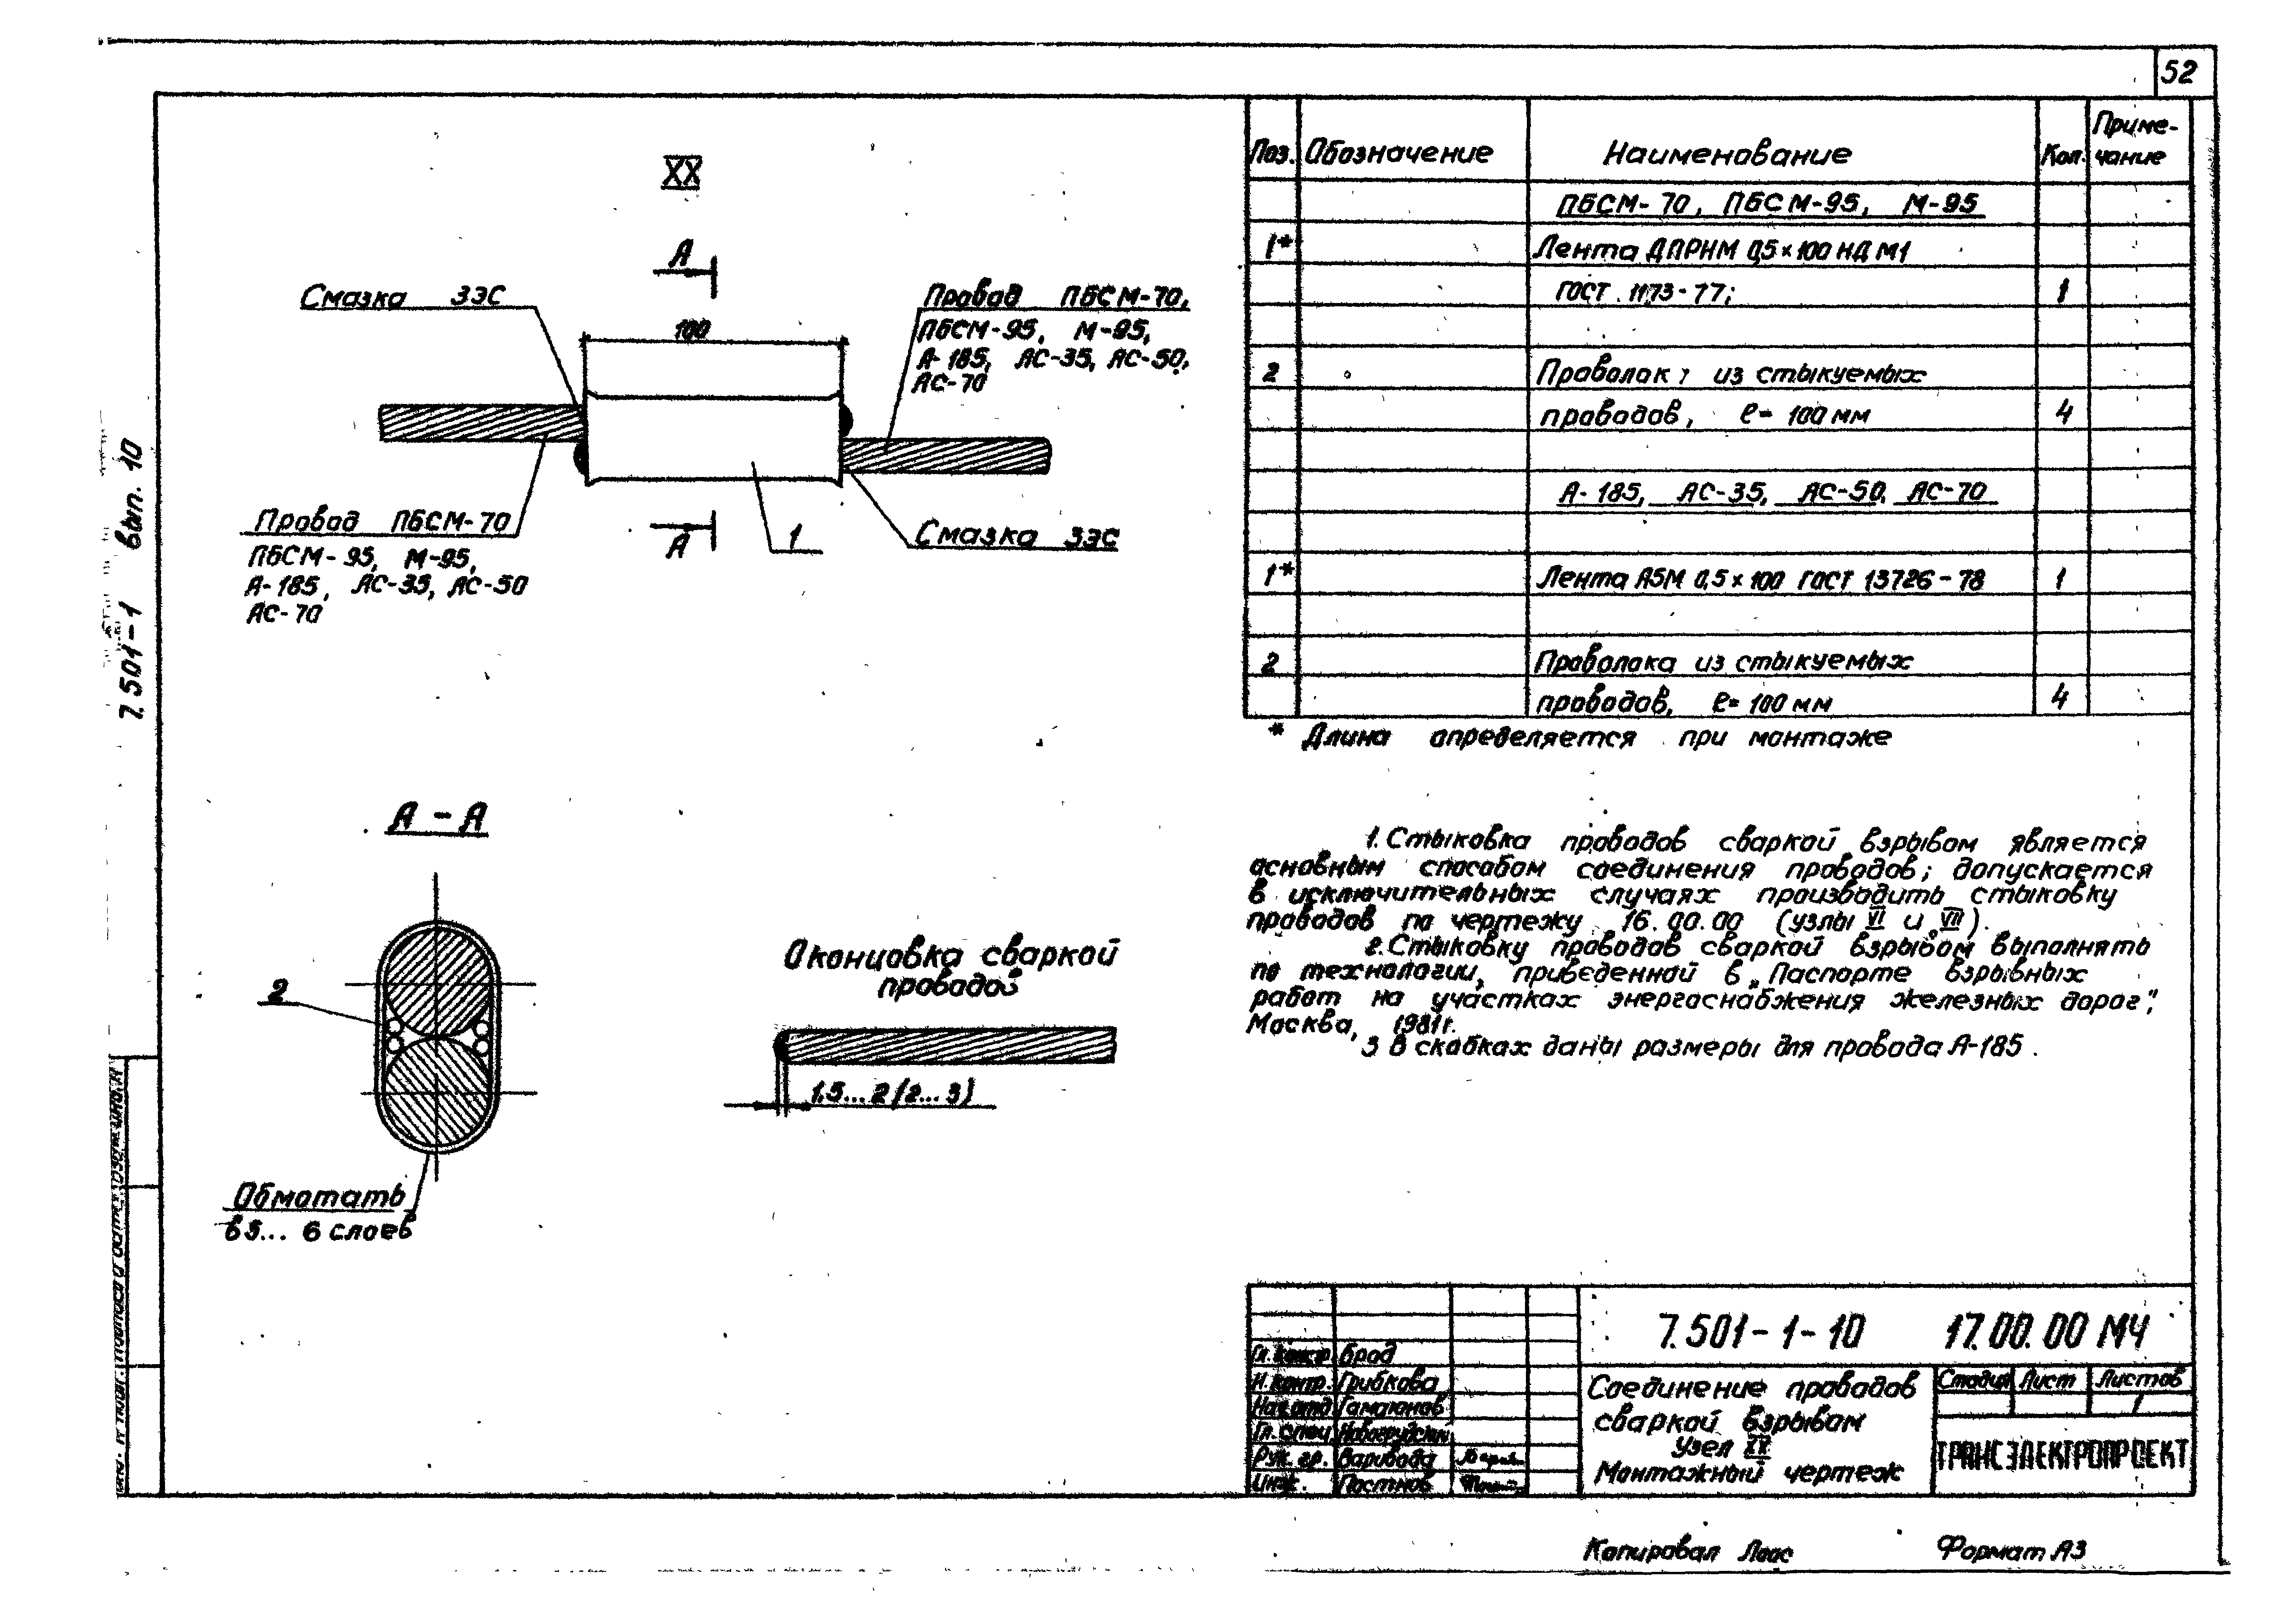 52
7.501-1 вып. 10
XX
А
Смазка ЗЭС
100
Провод ПБСМ-70,
ПБСМ-95, М-95,
А-185, АС-35, АС-50,
АС-70
Провод ПБСМ-70
ПБСМ-95, М-95,
А-185, АС-35, АС-50
АС-70
А
1
Смазка ЗЭС
А - А
2
Обмотать
в 5... 6 слоев
Оконцовка сваркой
проводов
1,5... 2 (2... 3)
Поз. Обозначение Наименование Кол. Приме-
чание
ПБСМ-70, ПБСМ-95, М-95
1* Лента ДПРНМ 0,5×100 НД М1
ГОСТ 1173-77; 1
2 Проволока из стыкуемых
проводов, ℓ= 100 мм 4
А-185, АС-35, АС-50, АС-70
1* Лента А5М 0,5×100 ГОСТ 13726-78 1
2 Проволока из стыкуемых
проводов, ℓ= 100 мм 4
* Длина определяется при монтаже
1. Стыковка проводов сваркой взрывом является
основным способом соединения проводов; допускается
в исключительных случаях производить стыковку
проводов по чертежу 16.00.00 (узлы VI и VII).
2. Стыковку проводов сваркой взрывом выполнять
по технологии, приведенной в „Паспорте взрывных
работ на участках энергоснабжения железных дорог",
Москва, 1981г.
3 В скобках даны размеры для провода А-185.
7.501-1-10 17.00.00 МЧ
Гл. констр. Брод
Н. контр. Грибкова
Нач. отд. Гамаюнов
Гл. спец. Новогрудский
Рук. гр. Варивода
Инж. Постнов
Соединение проводов
сваркой взрывом
Узел XX
Монтажный чертеж
Стадия Лист Листов
1
ТРАНСЭЛЕКТРОПРОЕКТ
Копировал Формат А3